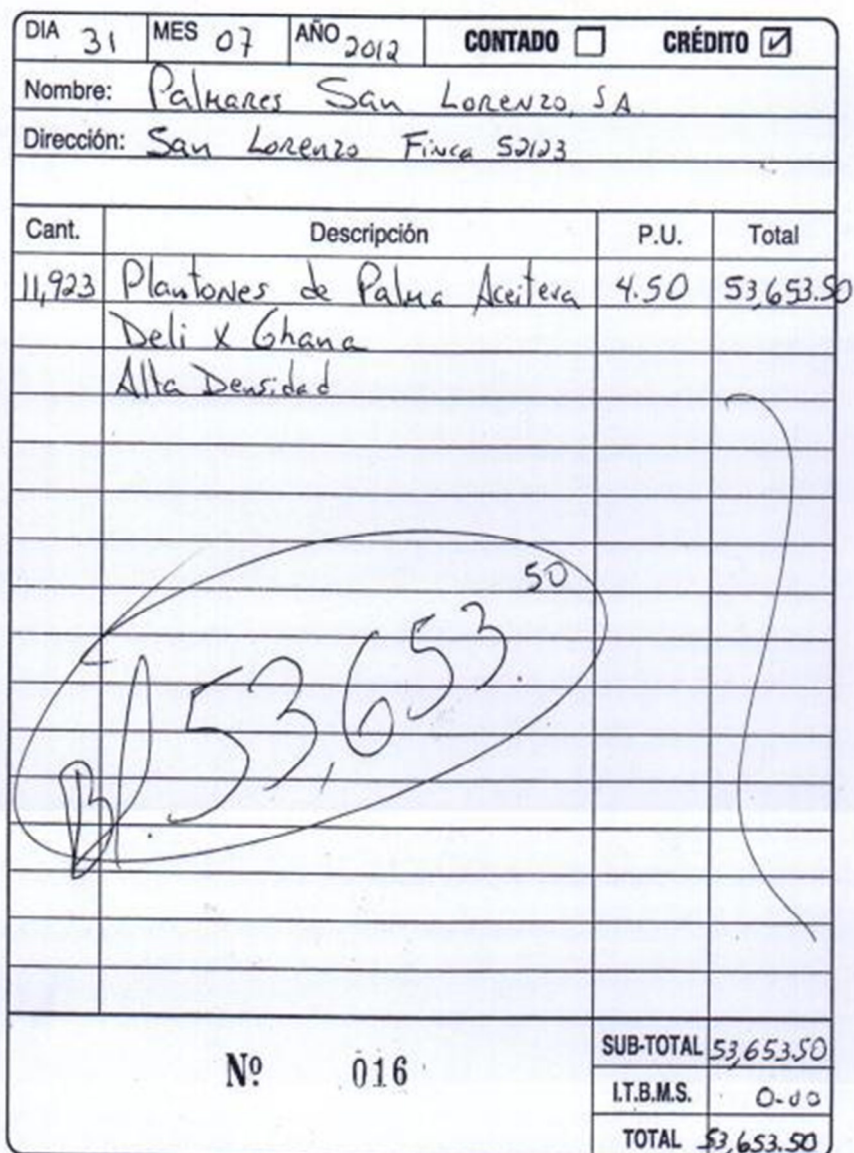 DIA 31 MES 07 AÑO 2012 CONTADO CRÉDITO
Nombre: Palmares San Lorenzo, S.A.
Dirección: San Lorenzo Finca 52123
Cant. Descripción P.U. Total
11,923 Plantones de Palma Aceitera 4.50 53,653.50
Deli x Ghana
Alta Densidad
B/. 53,653.50
Nº 016
SUB-TOTAL 53,653.50
I.T.B.M.S. 0.00
TOTAL 53,653.50